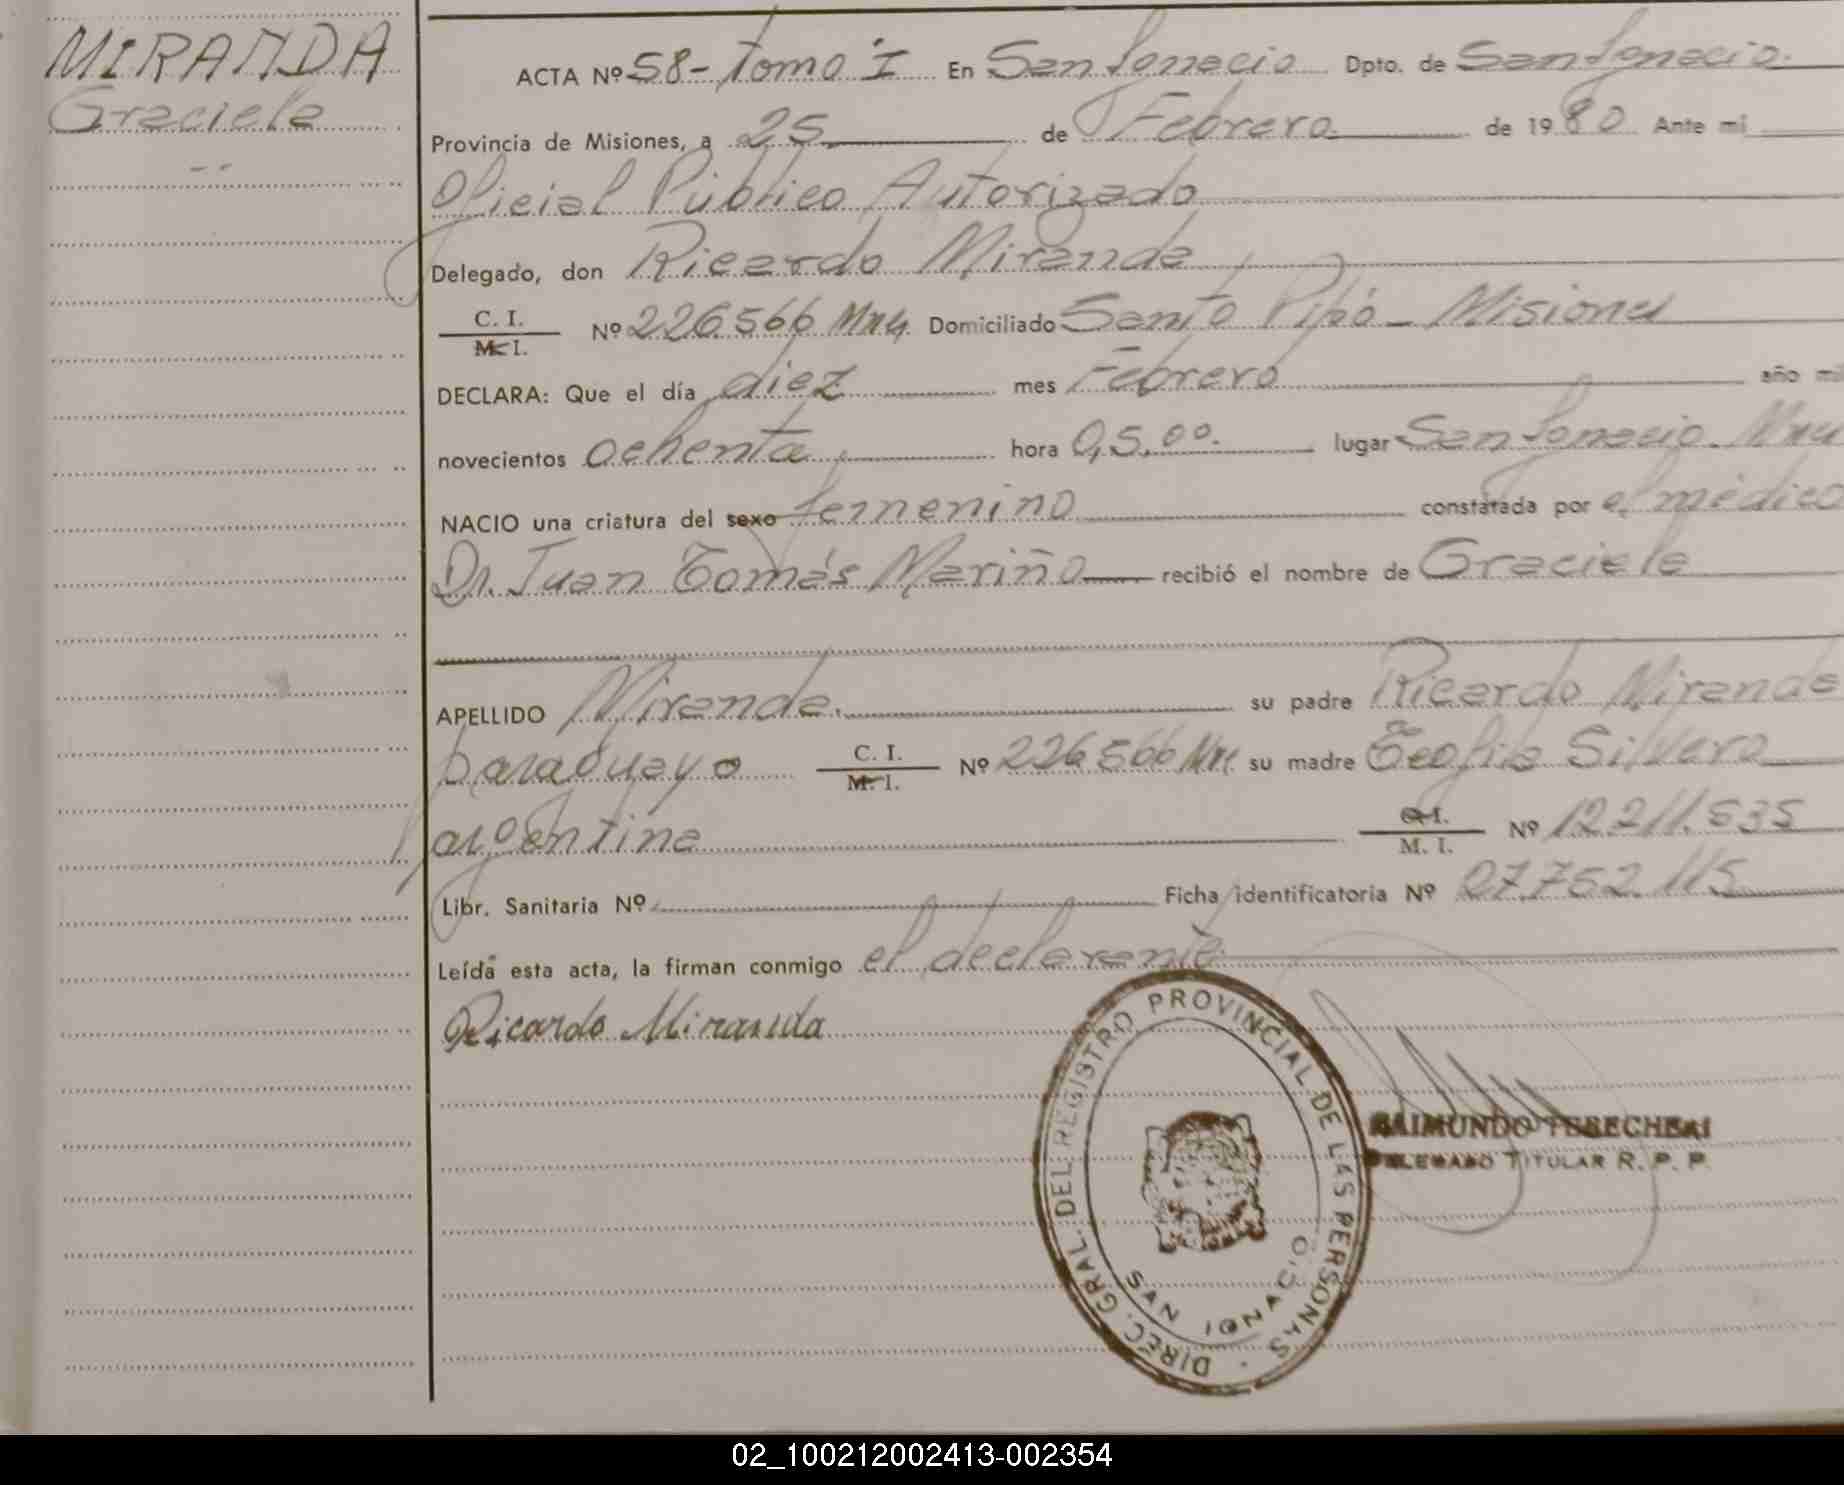 MIRANDA
Graciela
ACTA Nº 58- tomo I En San Ignacio Dpto. de San Ignacio.
Provincia de Misiones, a 25 de Febrero de 1980 Ante mi
Oficial Público Autorizado
Delegado, don Ricardo Miranda
C. I.
M. I. Nº 226.566 Mnes. Domiciliado Santo Pipó - Misiones
DECLARA: Que el día diez mes Febrero año mil
novecientos ochenta hora 0,5.00. lugar San Ignacio. Mnes
NACIO una criatura del sexo femenino constatada por el médico
Dr. Juan Tomás Mariño recibió el nombre de Graciela
APELLIDO Miranda. su padre Ricardo Miranda
paraguayo C. I.
M. I. Nº 226566 Mnes su madre Teofila Silvero
argentina C. I.
M. I. Nº 12.211.535
Libr. Sanitaria Nº Ficha identificatoria Nº 27.752.115
Leída esta acta, la firman conmigo el declarante.
Ricardo Miranda
DIREC. GRAL. DEL REGISTRO PROVINCIAL DE LAS PERSONAS.
SAN IGNACIO
RAIMUNDO
DELEGADO TITULAR R. P. P.
02_100212002413-002354